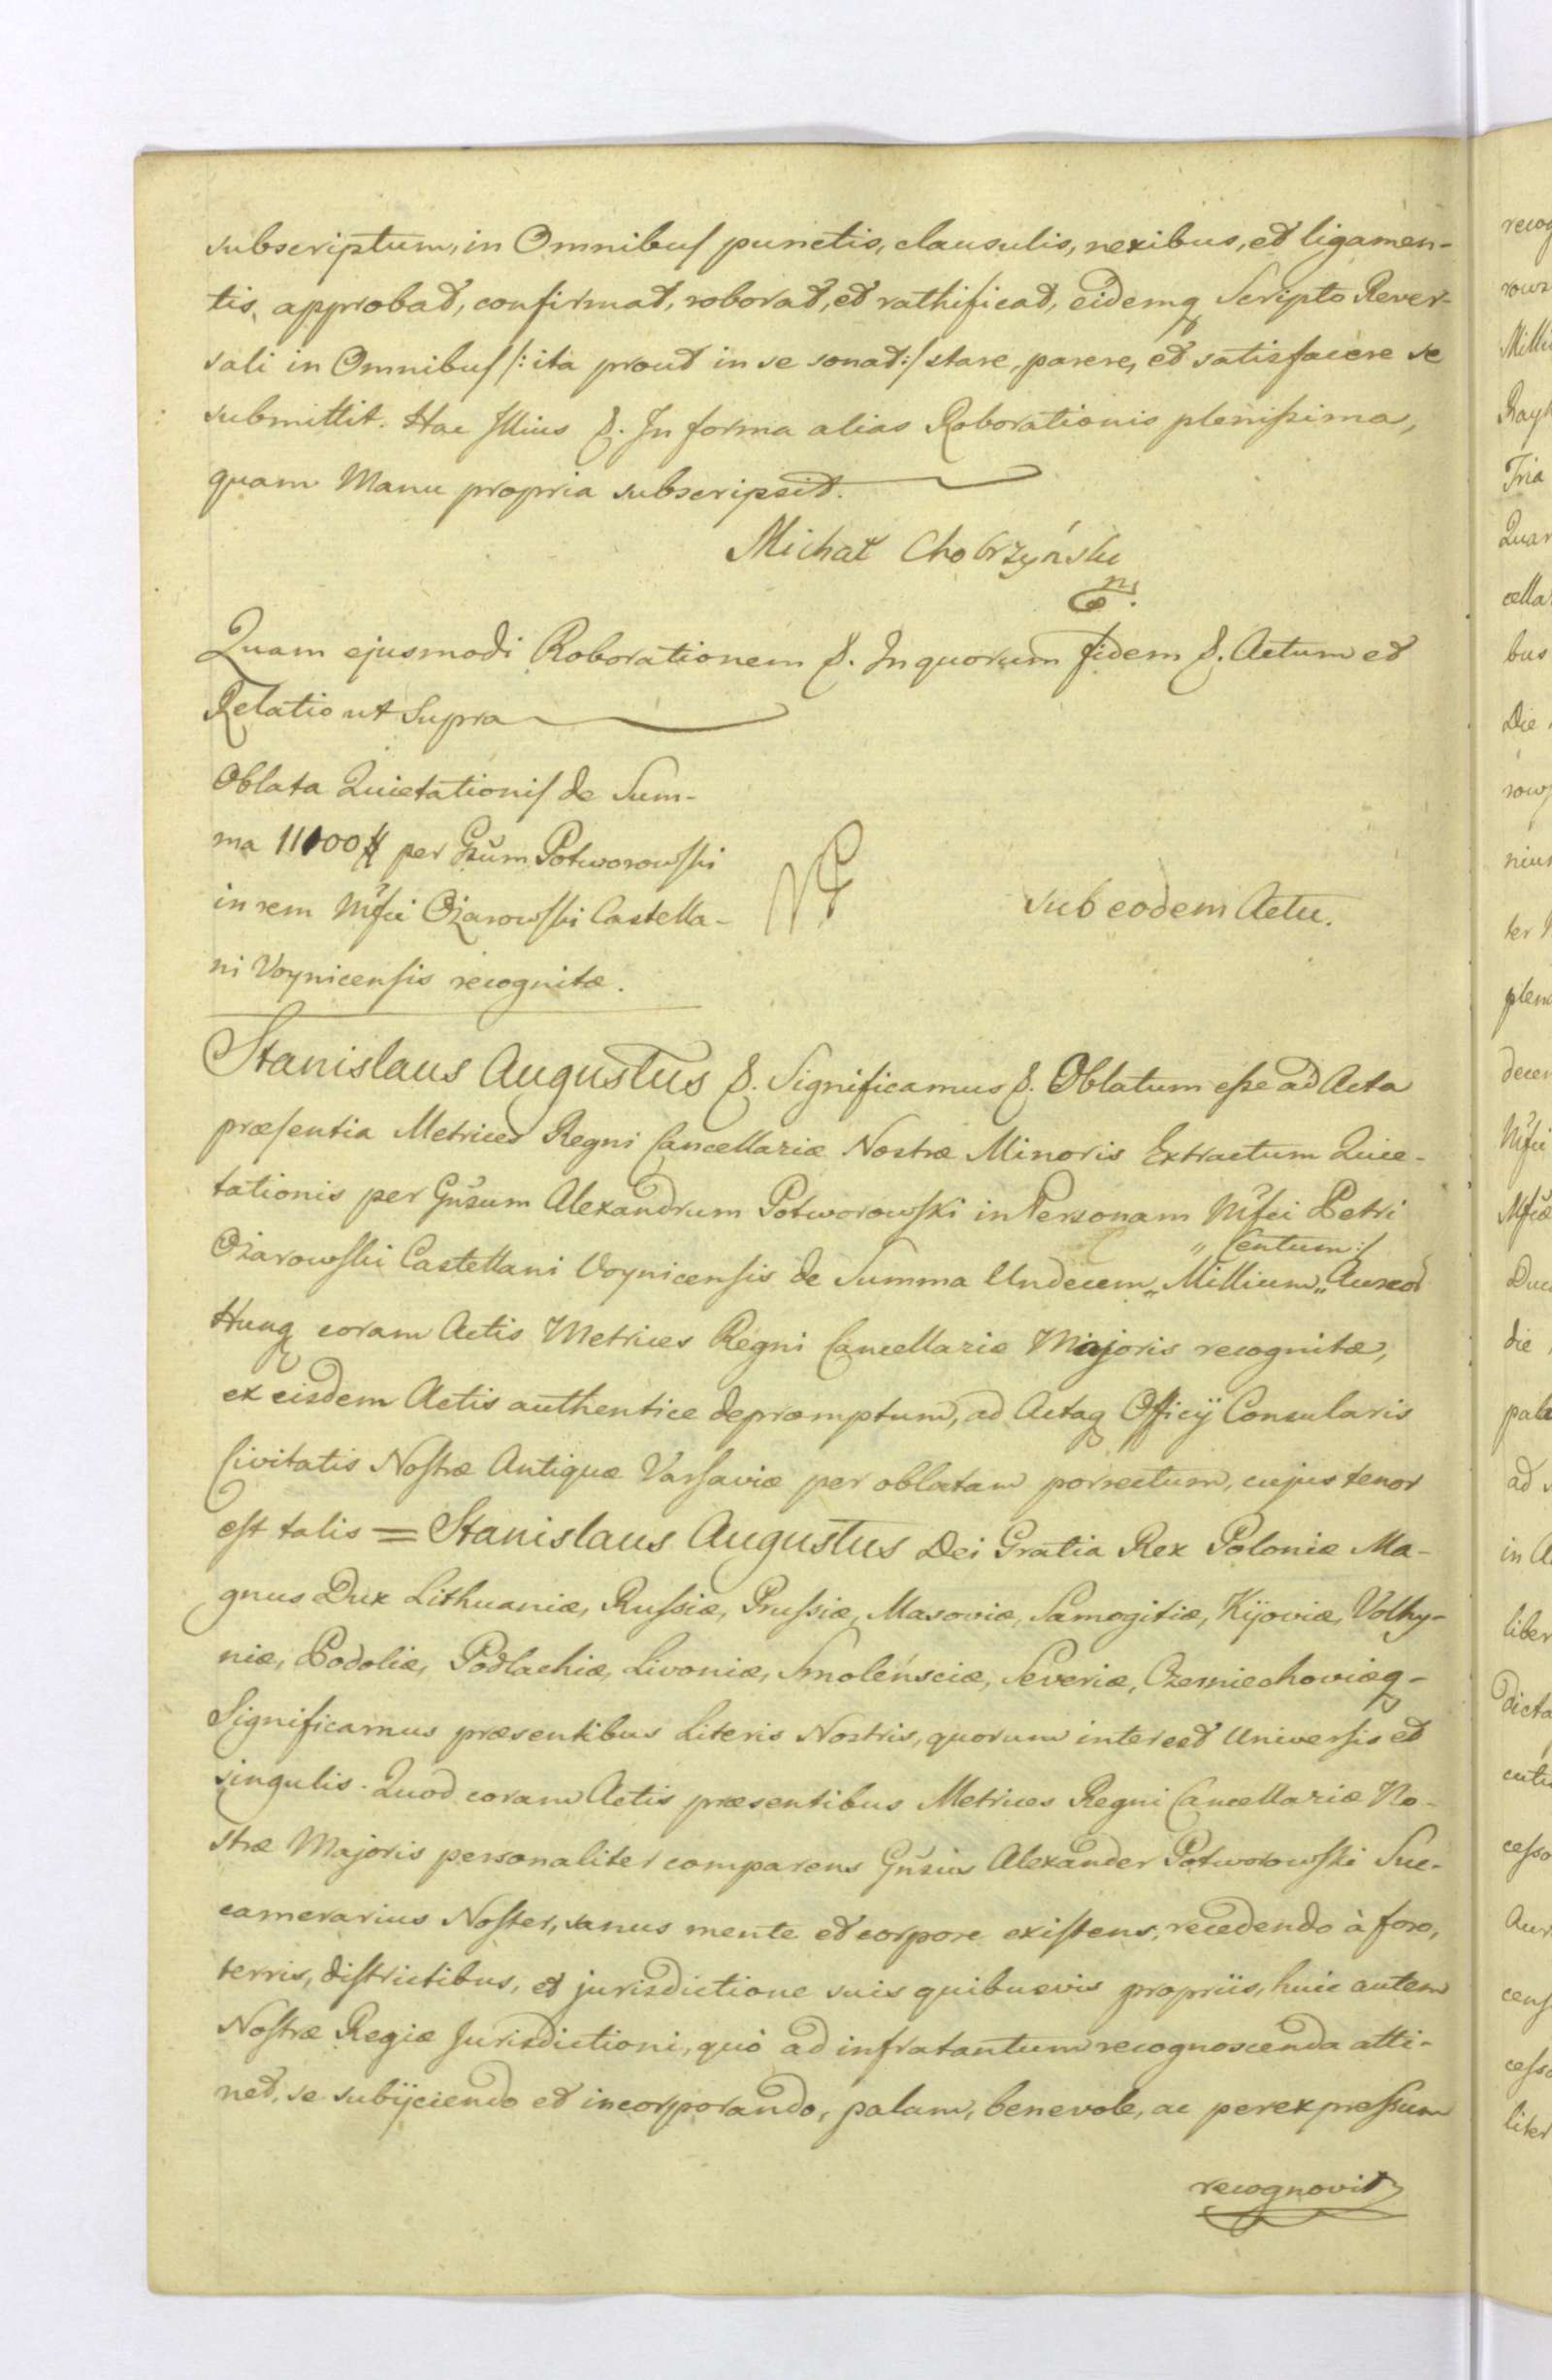 subscriptum, in Omnibus punctis, clausulis, nexibus, et ligamen-
tis, approbat, confirmat, roborat, et rathificat, eidemq Scripto Rever-
sali in Omnibus /: ita prout in se sonat :/ stare, parere, et satisfacere se
submittit. Hac Illius &. In forma alias Roborationis plenissima,
quam Manu propria subscripsit.
Michał Chobrzyński
Quam ejusmodi Roborationem &. In quorum fidem &. Actum et
Relatio ut Supra
Oblata Quietationis de Sum-
ma 11100 # per Gsum Potworowski
in rem Mfci Ożarowski Castella-
ni Voynicensis recognitæ.
sub eodem Actu.
Stanislaus Augustus &. Significamus &. Oblatum esse ad Acta
præsentia Metrices Regni Cancellariæ Nostræ Minoris Extractum Quie-
tationis per Gnsum Alexandrum Potworowski in Personam Mfci Petri
„ Centum :/
Ożarowski Castellani Voynicensis de Summa Undecem „ Millium „ Aureor
Hunq coram Actis Metrices Regni Cancellariæ Majoris recognitæ,
ex eisdem Actis authentice depromptum, ad Actaq Officÿ Consularis
Civitatis Nostræ Antiquæ Varsaviæ per oblatam porrectum, cujus tenor
est talis = Stanislaus Augustus Dei Gratia Rex Poloniæ Ma-
gnus Dux Lithuaniæ, Russiæ, Prussiæ, Masoviæ, Samogitiæ, Kijoviæ, Volhy-
niæ, Podoliæ, Podlachiæ, Livoniæ, Smolénsciæ, Severiæ, Czerniechoviæq -
Significamus præsentibus Literis Nostris, quorum interest Universis et
singulis. Quod coram Actis præsentibus Metrices Regni Cancellariæ No-
stræ Majoris personaliter comparens Gnsus Alexander Potworowski Suc-
camerarius Noster, sanus mente et corpore existens, recedendo à foro,
terris, districtibus, et jurisdictione suis quibusvis propriis, huic autem
Nostræ Regiæ Jurisdictioni, quò ad infra tantum recognoscenda atti-
net, se subÿciendo et incorporando, palam, benevole, ac per expressum
recognovit